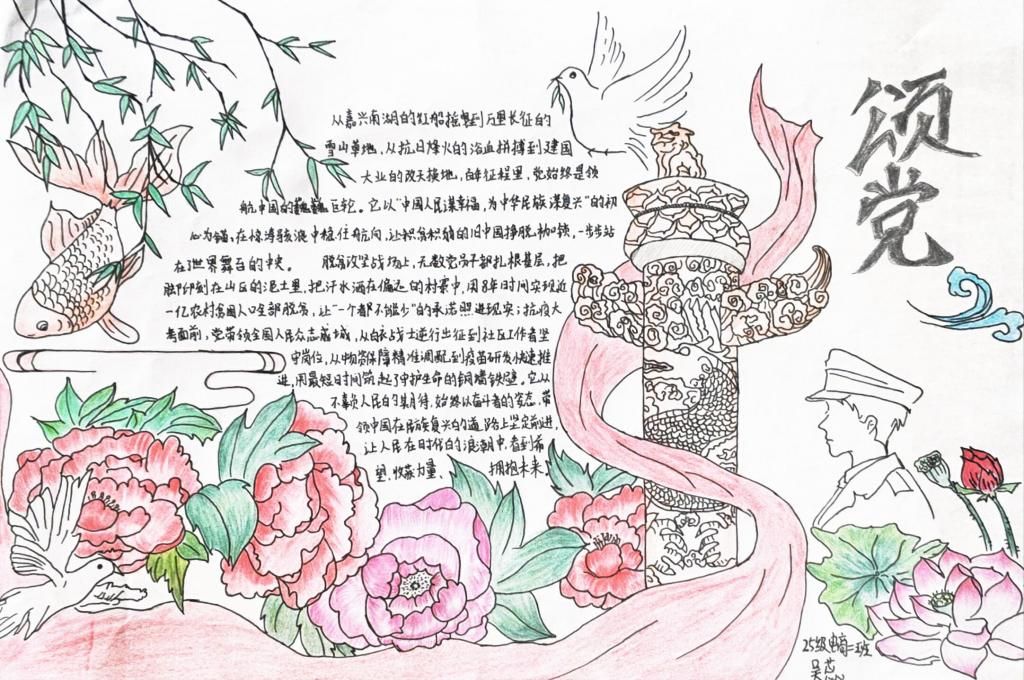 颂党
从嘉兴南湖的红船摇曳到万里长征的
雪山草地,从抗日烽火的浴血拼搏到建国
大业的改天换地,百年征程里,党始终是领
航中国的巍巍巨轮。它以“中国人民谋幸福,为中华民族谋复兴”的初
心为锚,在惊涛骇浪中稳住航向,让积贫积弱的旧中国挣脱枷锁,一步步站
在世界舞台的中央。 脱贫攻坚战场上,无数党员干部扎根基层,把
脚印刻在山区的泥土里,把汗水洒在偏远的村寨中,用8年时间实现近
一亿农村贫困人口全部脱贫,让“一个都不能少”的承诺照进现实;抗疫大
考面前,党带领全国人民众志成城,从白衣战士逆行出征到社区工作者坚
守岗位,从物资保障精准调配到疫苗研发快速推
进,用最短时间筑起了守护生命的铜墙铁壁。它从
不辜负人民的期待,始终以奋斗者的姿态,带
领中国在民族复兴的道路上坚定前进,
让人民在时代的浪潮中,看到希
望、收获力量、 拥抱未来
25级电商二班
吴芯